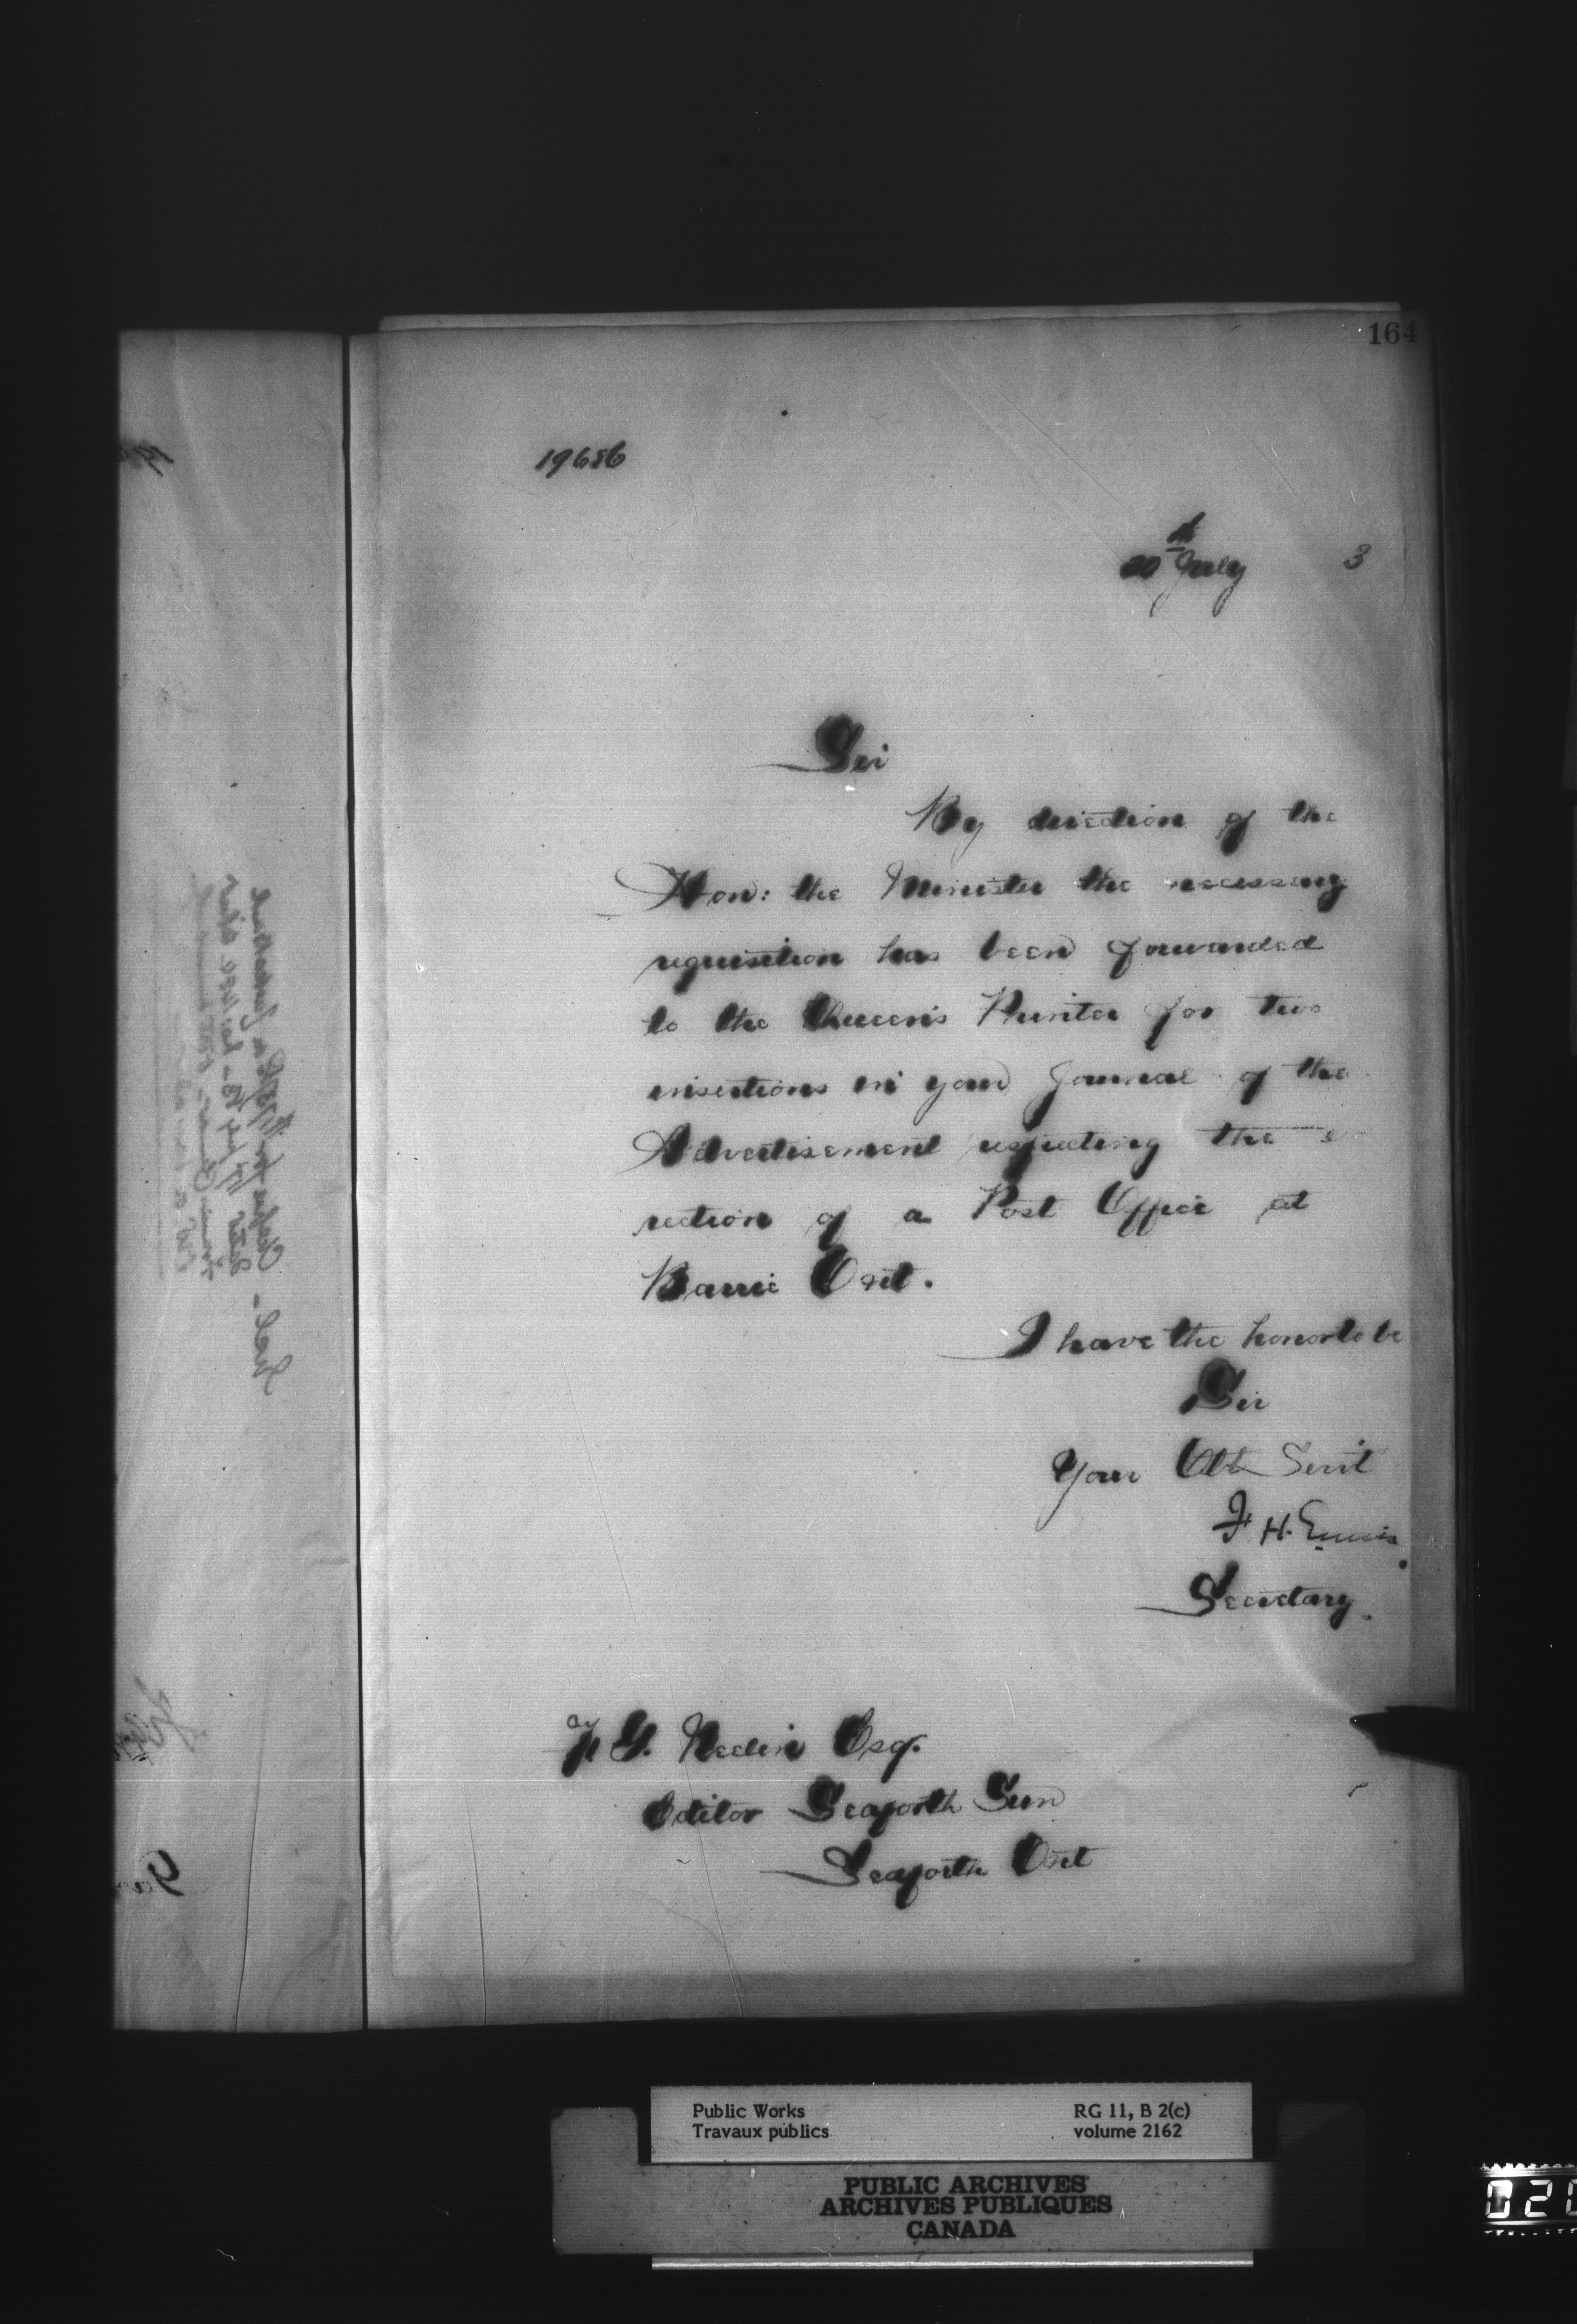 164
19686
20th July 3
Sir
By direction of the
Hon: the Minister the necessary
requisition has been forwarded
to the Queen's Printer for two
insertions in your Journal of the
Advertisement respecting the e-
rection of a Post Office at
Barrie Ont.
I have the honor to be
Sir
Your Obt Servt
F. H. Ennis
Secretary.
G. Neelin Esq.
Editor Seaforth Sun
Seaforth Ont
Public Works
Travaux publics
RG 11, B 2(c)
volume 2162
PUBLIC ARCHIVES
ARCHIVES PUBLIQUES
CANADA
020